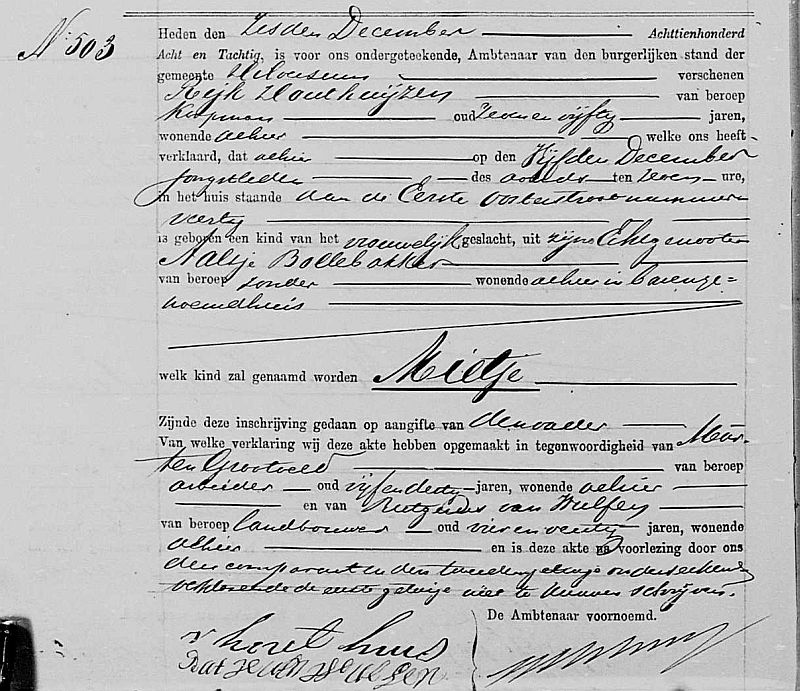 No 503
Heden den zesden December Achttienhonderd
Acht en Tachtig, is voor ons ondergeteekende, Ambtenaar van den burgerlijken stand der
gemeente Hilversum verschenen
Rijk Houthuijzen van beroep
Koopman oud zeven en vijftig jaren,
wonende alhier welke ons heeft
verklaard, dat alhier op den Vijfden December
jongstleden des avonds ten zeven ure,
in het huis staande aan de Eerste Oosterstraat nummer
veertig
is geboren een kind van het vrouwelijk geslacht, uit zijne Echtgenoote
Naatje Bollebakker
van beroep zonder wonende alhier in voorge=
noemd huis
welk kind zal genaamd worden Mietje
Zijnde deze inschrijving gedaan op aangifte van den vader
Van welke verklaring wij deze akte hebben opgemaakt in tegenwoordigheid van Maar-
ten Grootveld van beroep
arbeider oud vijfendertig jaren, wonende alhier
en van Rutgerus van Wulfen
van beroep landbouwer oud vier en veertig jaren, wonende
alhier en is deze akte na voorlezing door ons
den comparant en den tweeden getuige onderteekend
verklarende de eerste getuige niet te kunnen schrijven.
De Ambtenaar voornoemd.